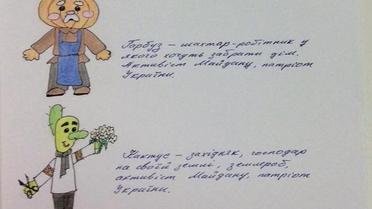 Гарбуз – шахтар-робітник у
якого хочуть забрати дім.
Активіст Майдану, патріот
України.
Кактус – західняк, господар
на своїй землі, землероб,
активіст Майдану, патріот
України.